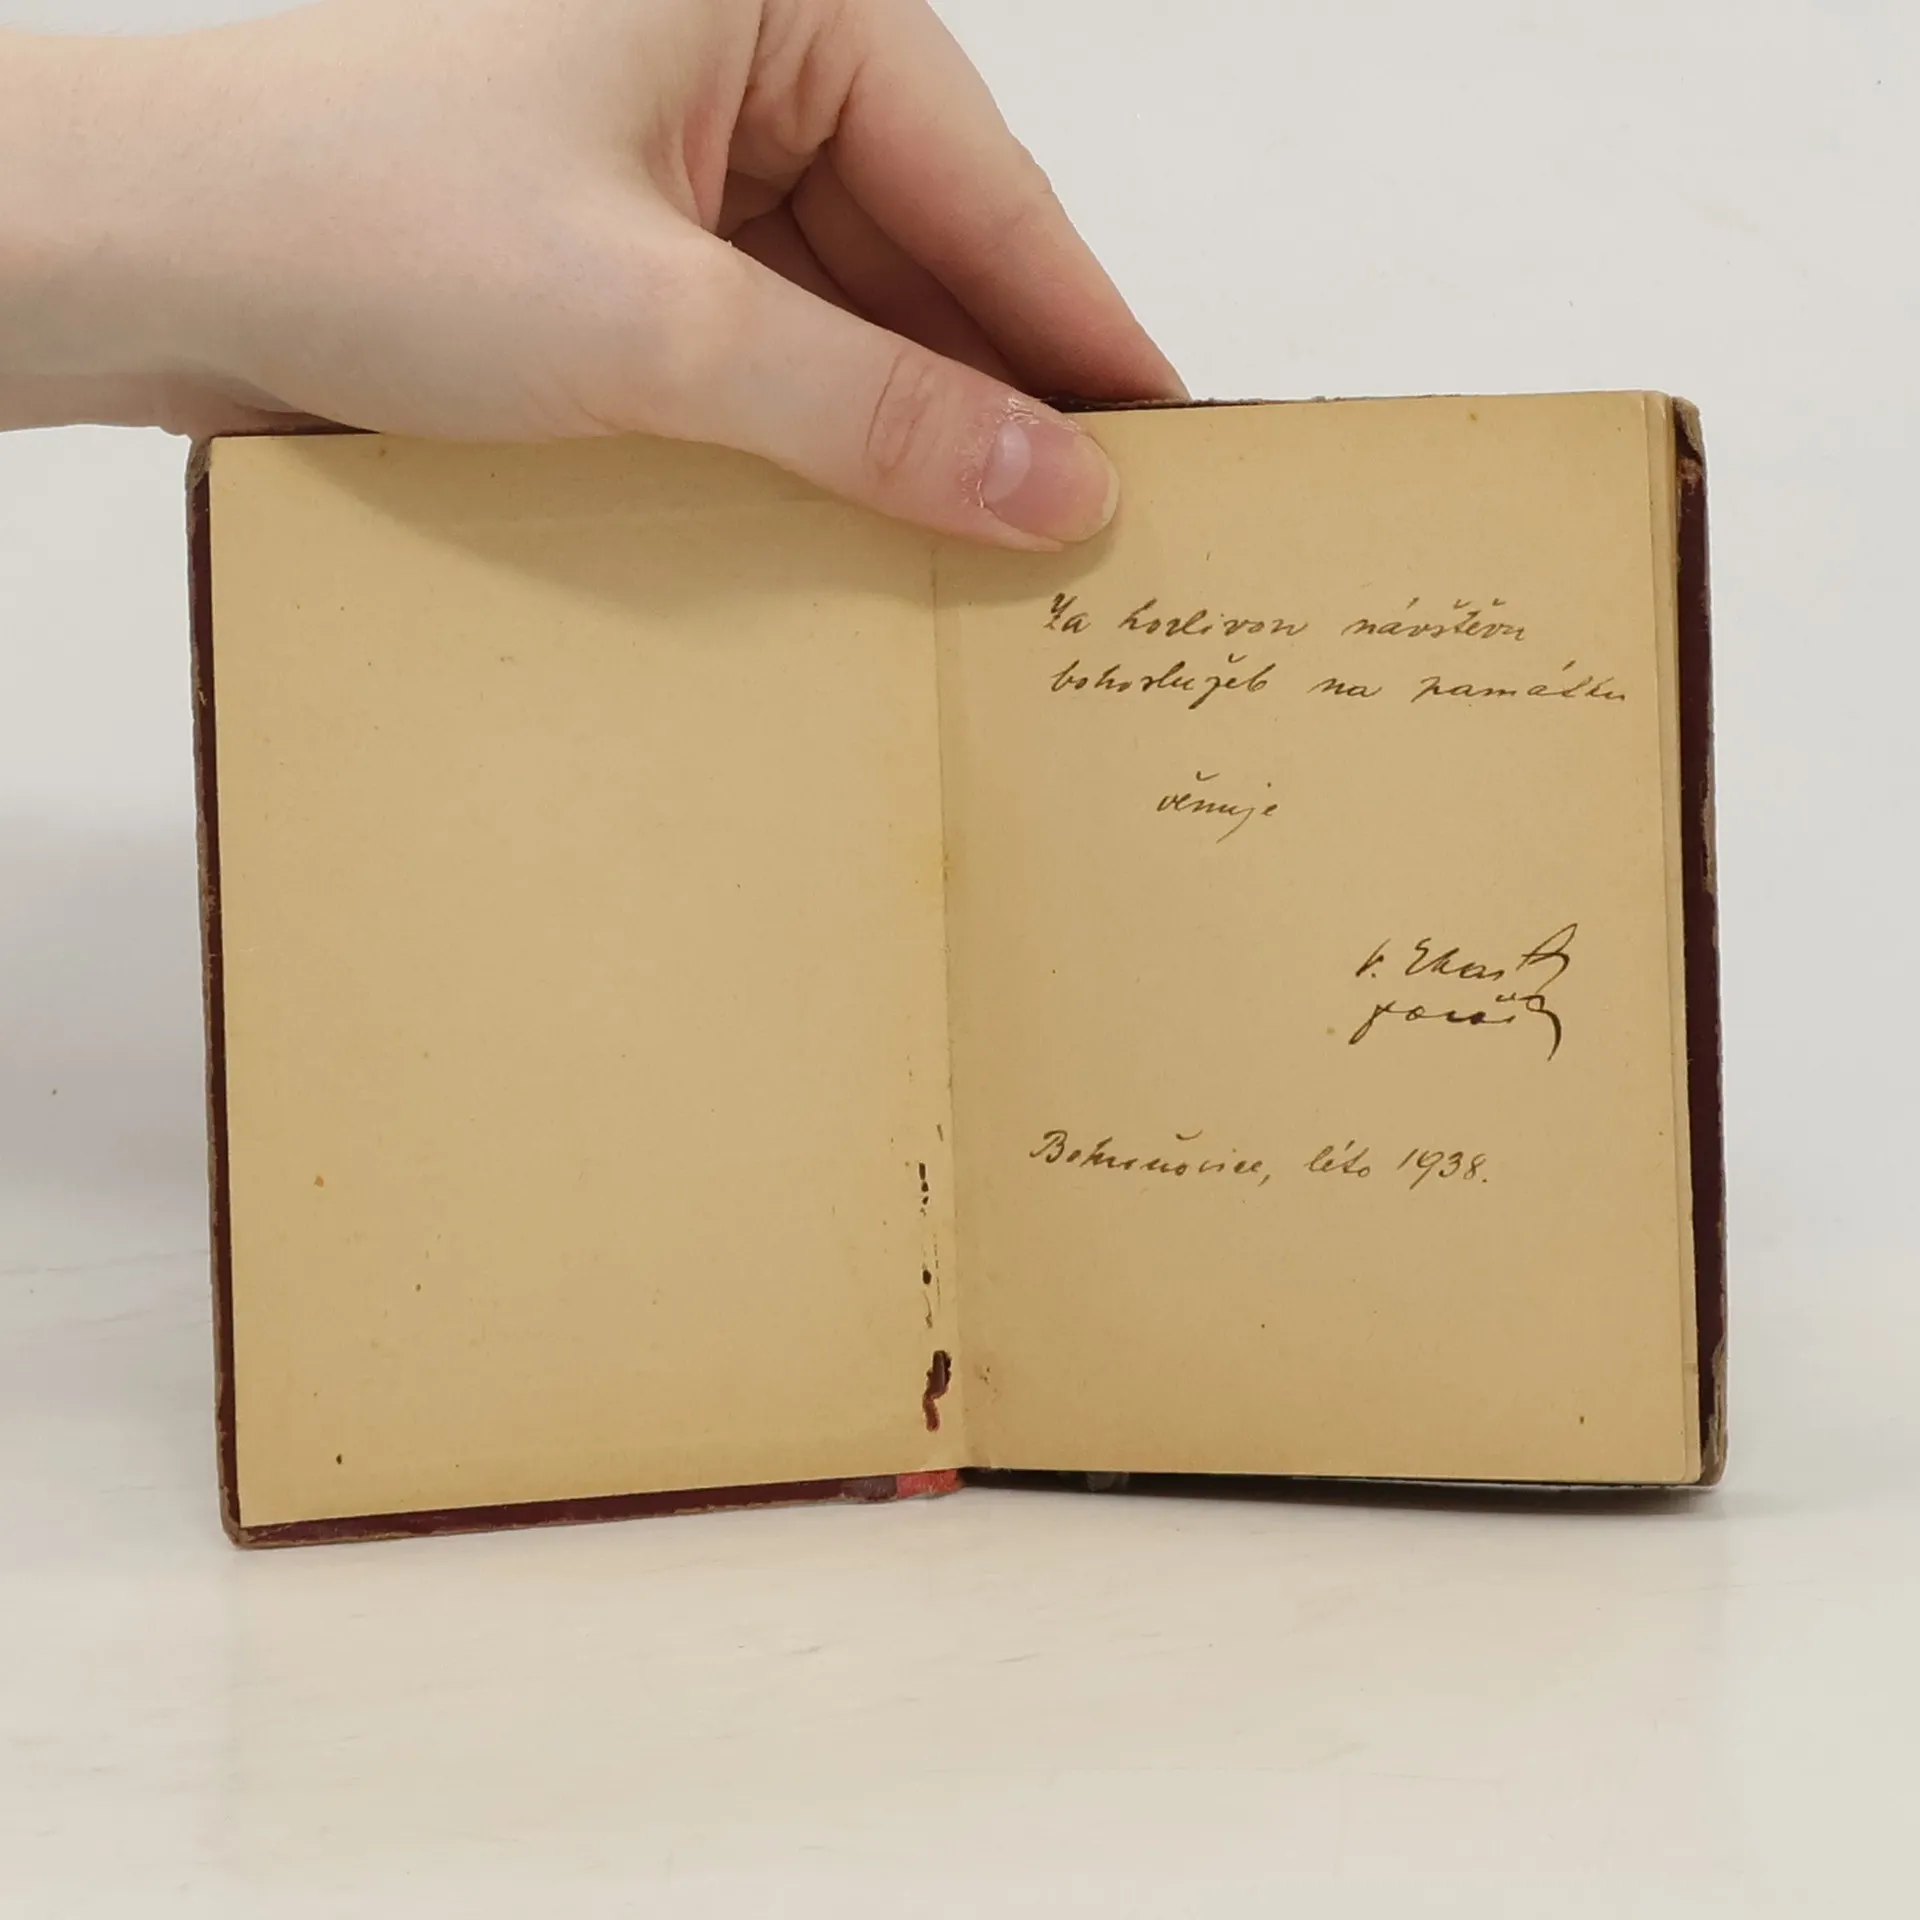 Za horlivou návštěvu
bohoslužeb na památku
věnuje
V.
farář
Bohuňovice, léto 1938.